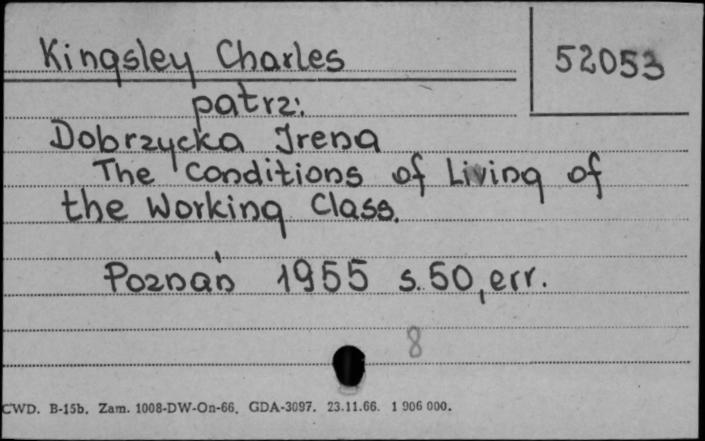 Kingsley Charles
52053
patrz:
Dobrzycka Irena
The Conditions of Living of
the Working Class.
Poznań 1955 s. 50, err.
8
CWD. B-15b. Zam. 1008-DW-On-66. GDA-3097. 23.11.66. 1 906 000.